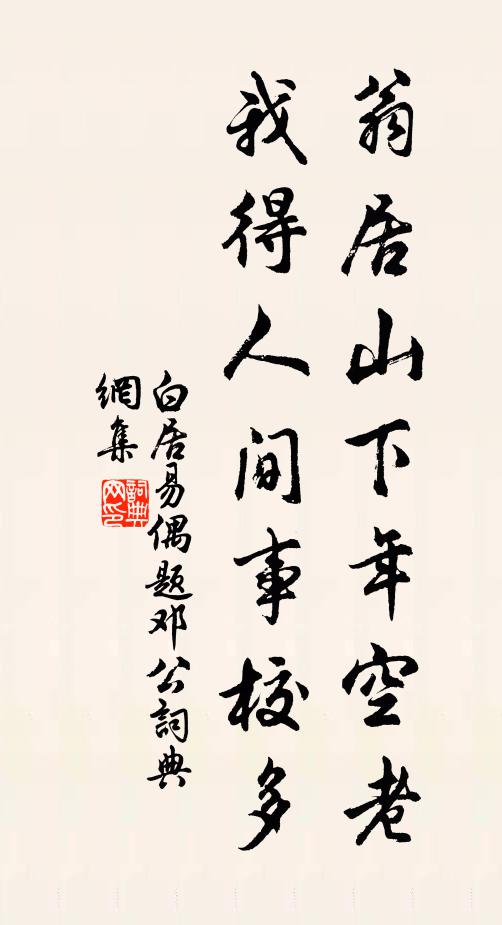 翁居山下年空老
我得人间事校多
白居易偶题邓公詞典
網集
詞典
网印